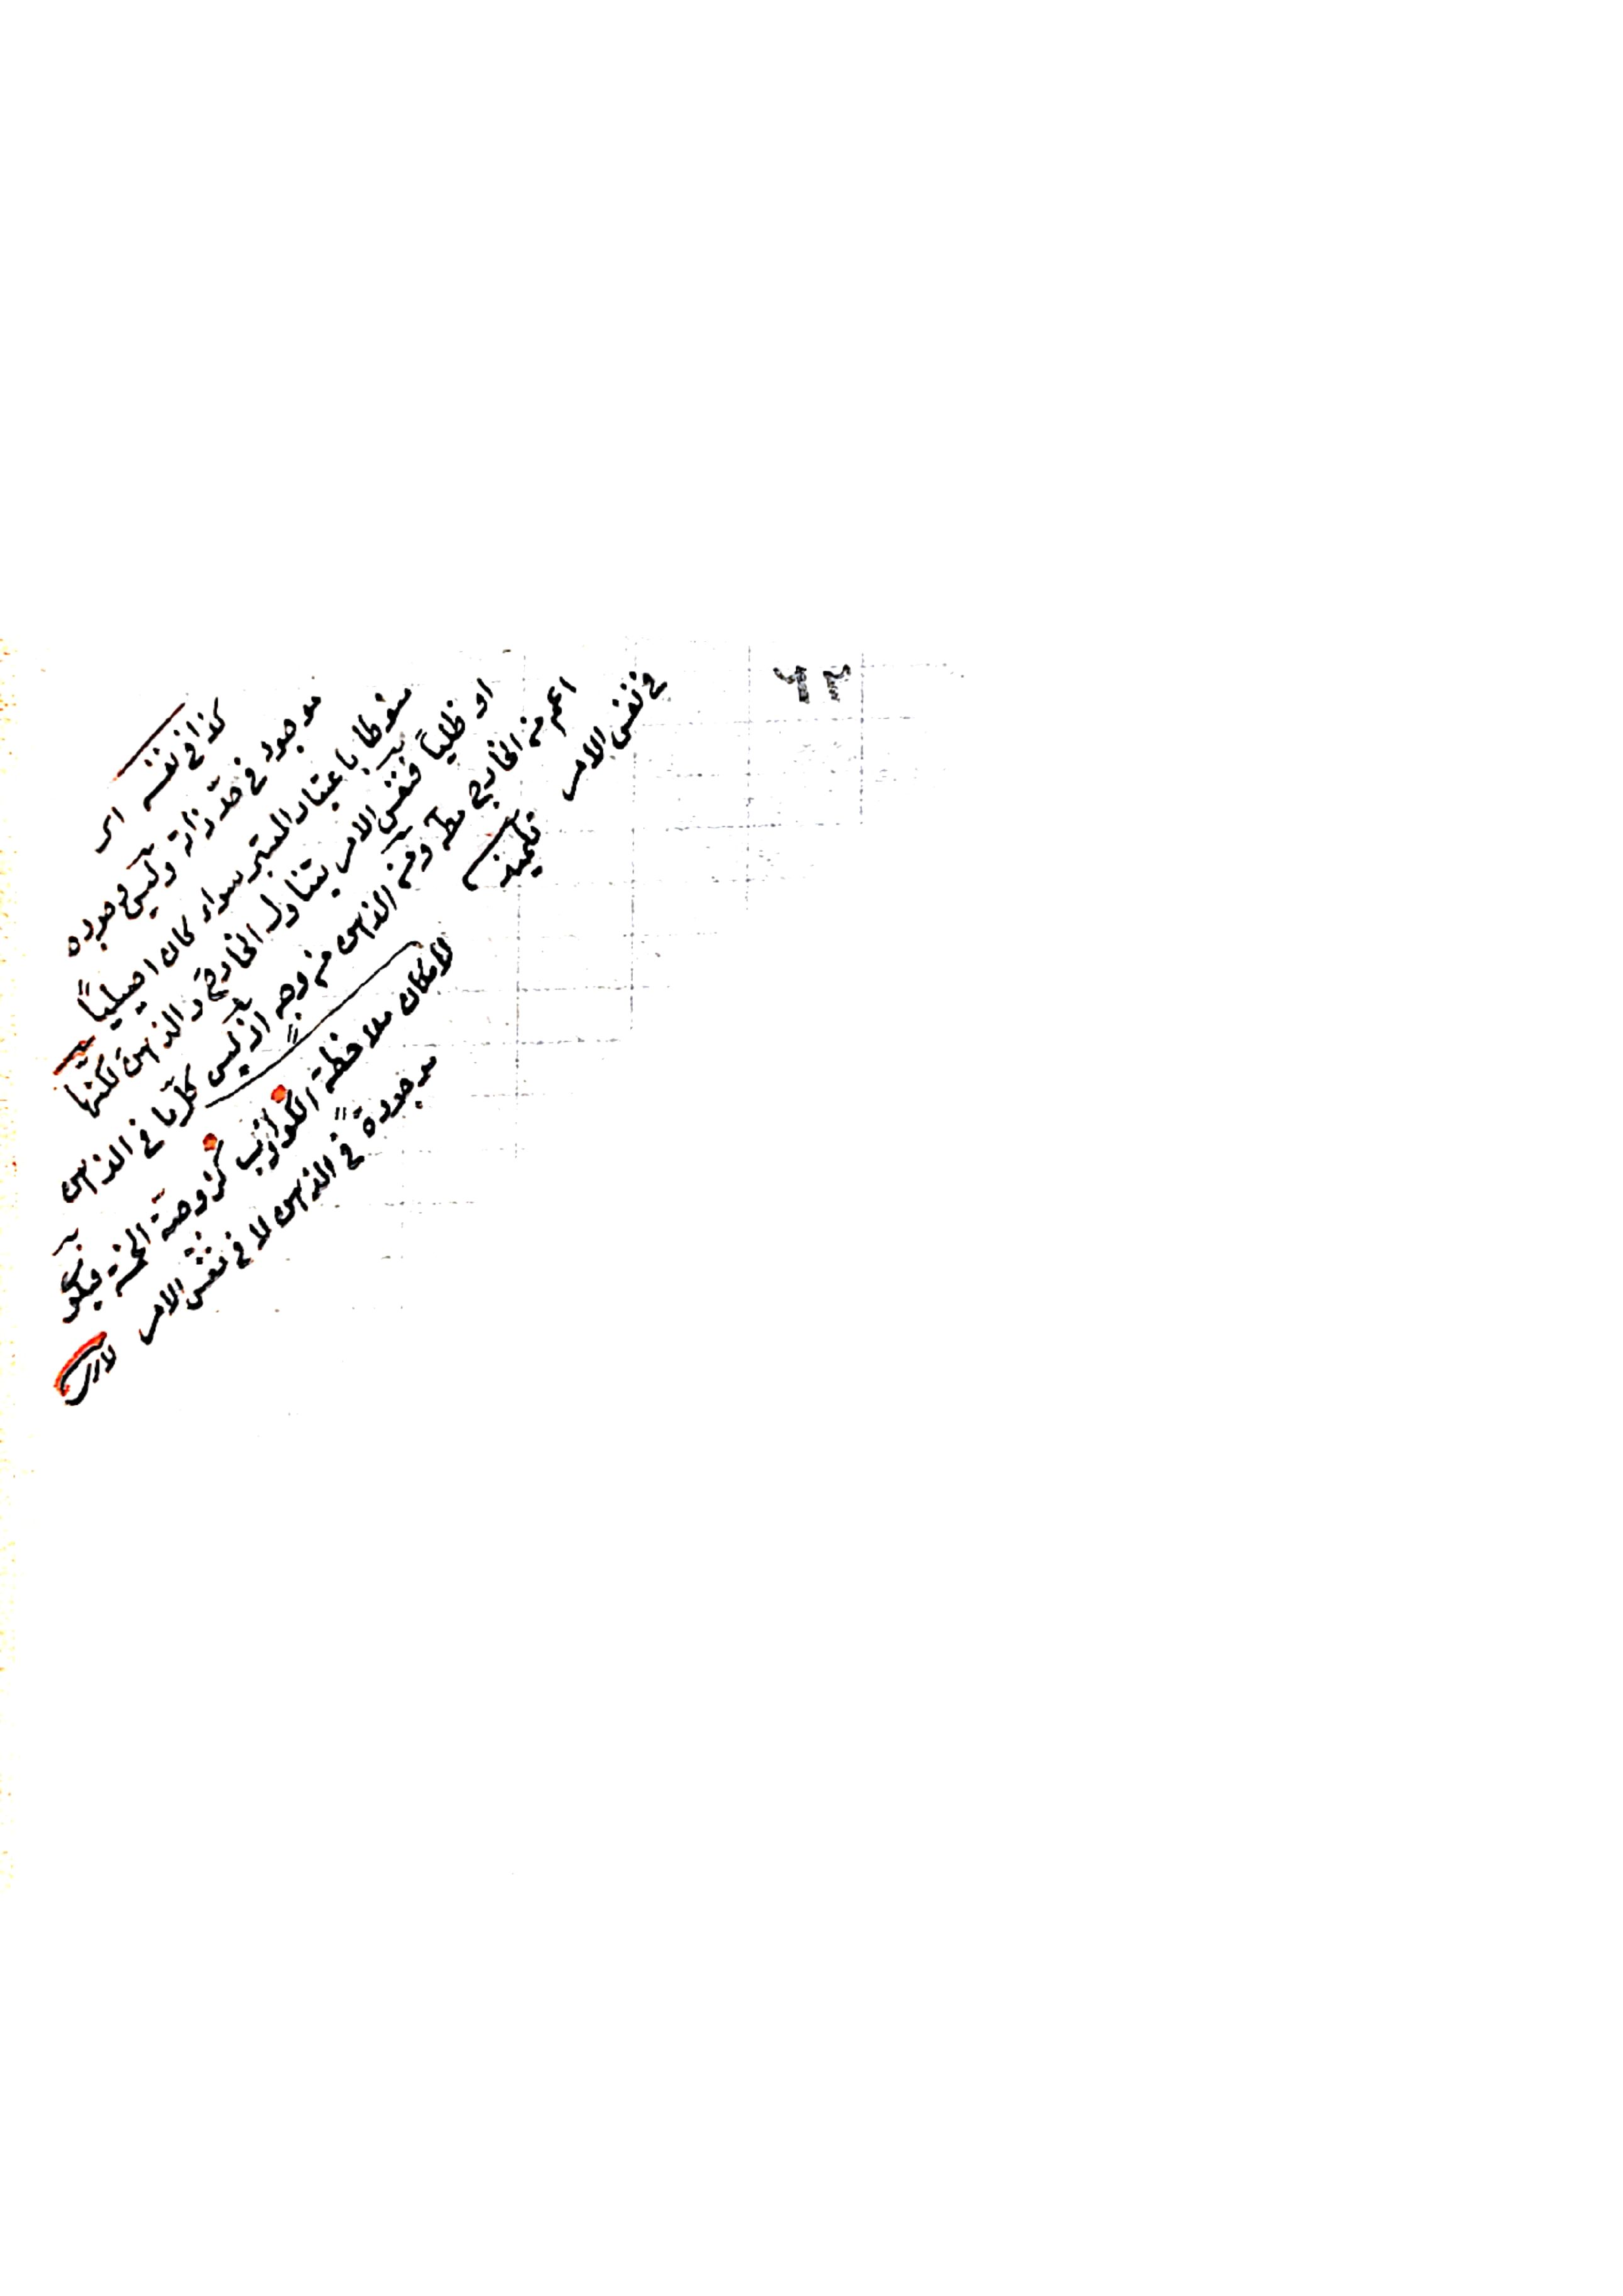 ٩٢
كذا في نفسه اى
موجود في حد ذاته وليس وجوده
منوطا باعتبار المعتبر سواء كان اصليا
او ظليا فنفس الامر يتناول الخارج والذهن لكنها
اعم من الخارج مطلقا ومن الذهن من وجه اذ ليس كل ما في الذهن
في نفس الامر
لامكان ملاحظة الكواذب كزوجية الخمسة فيكون
موجودة في الذهن لا في نفس الامر